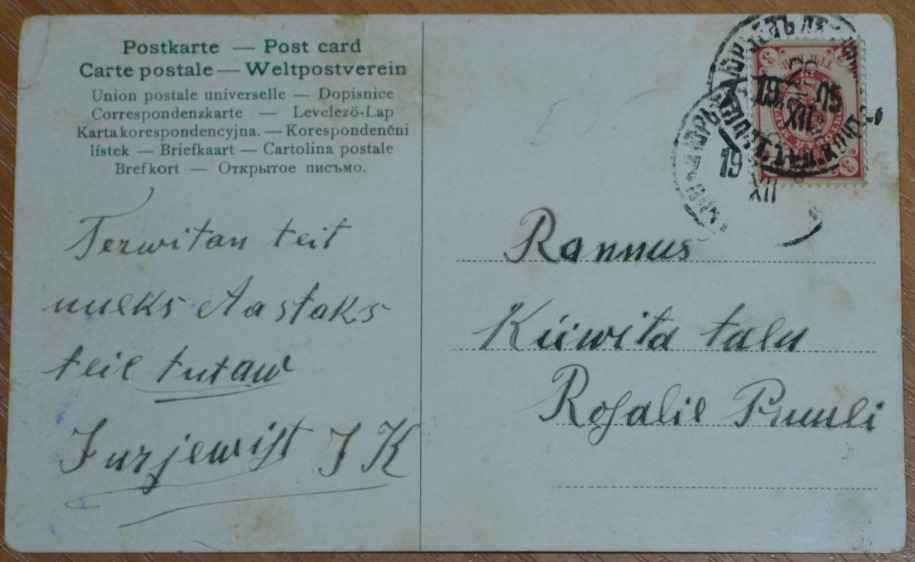 Postkarte — Post card
Carte postale — Weltpostverein
Union postale universelle — Dopisnice
Correspondenzkarte — Levelezö-Lap
Karta korespondencyjna. — Korespondenční
lístek — Briefkaart — Cartolina postale
Brefkort — Открытое письмо.
Terwitan teit
uueks Aastaks
teil tutaw
Jurjewist J K
19 XII 05
19 XII
3
3
Rannus
Küwita talu
Rosalie Pruuli